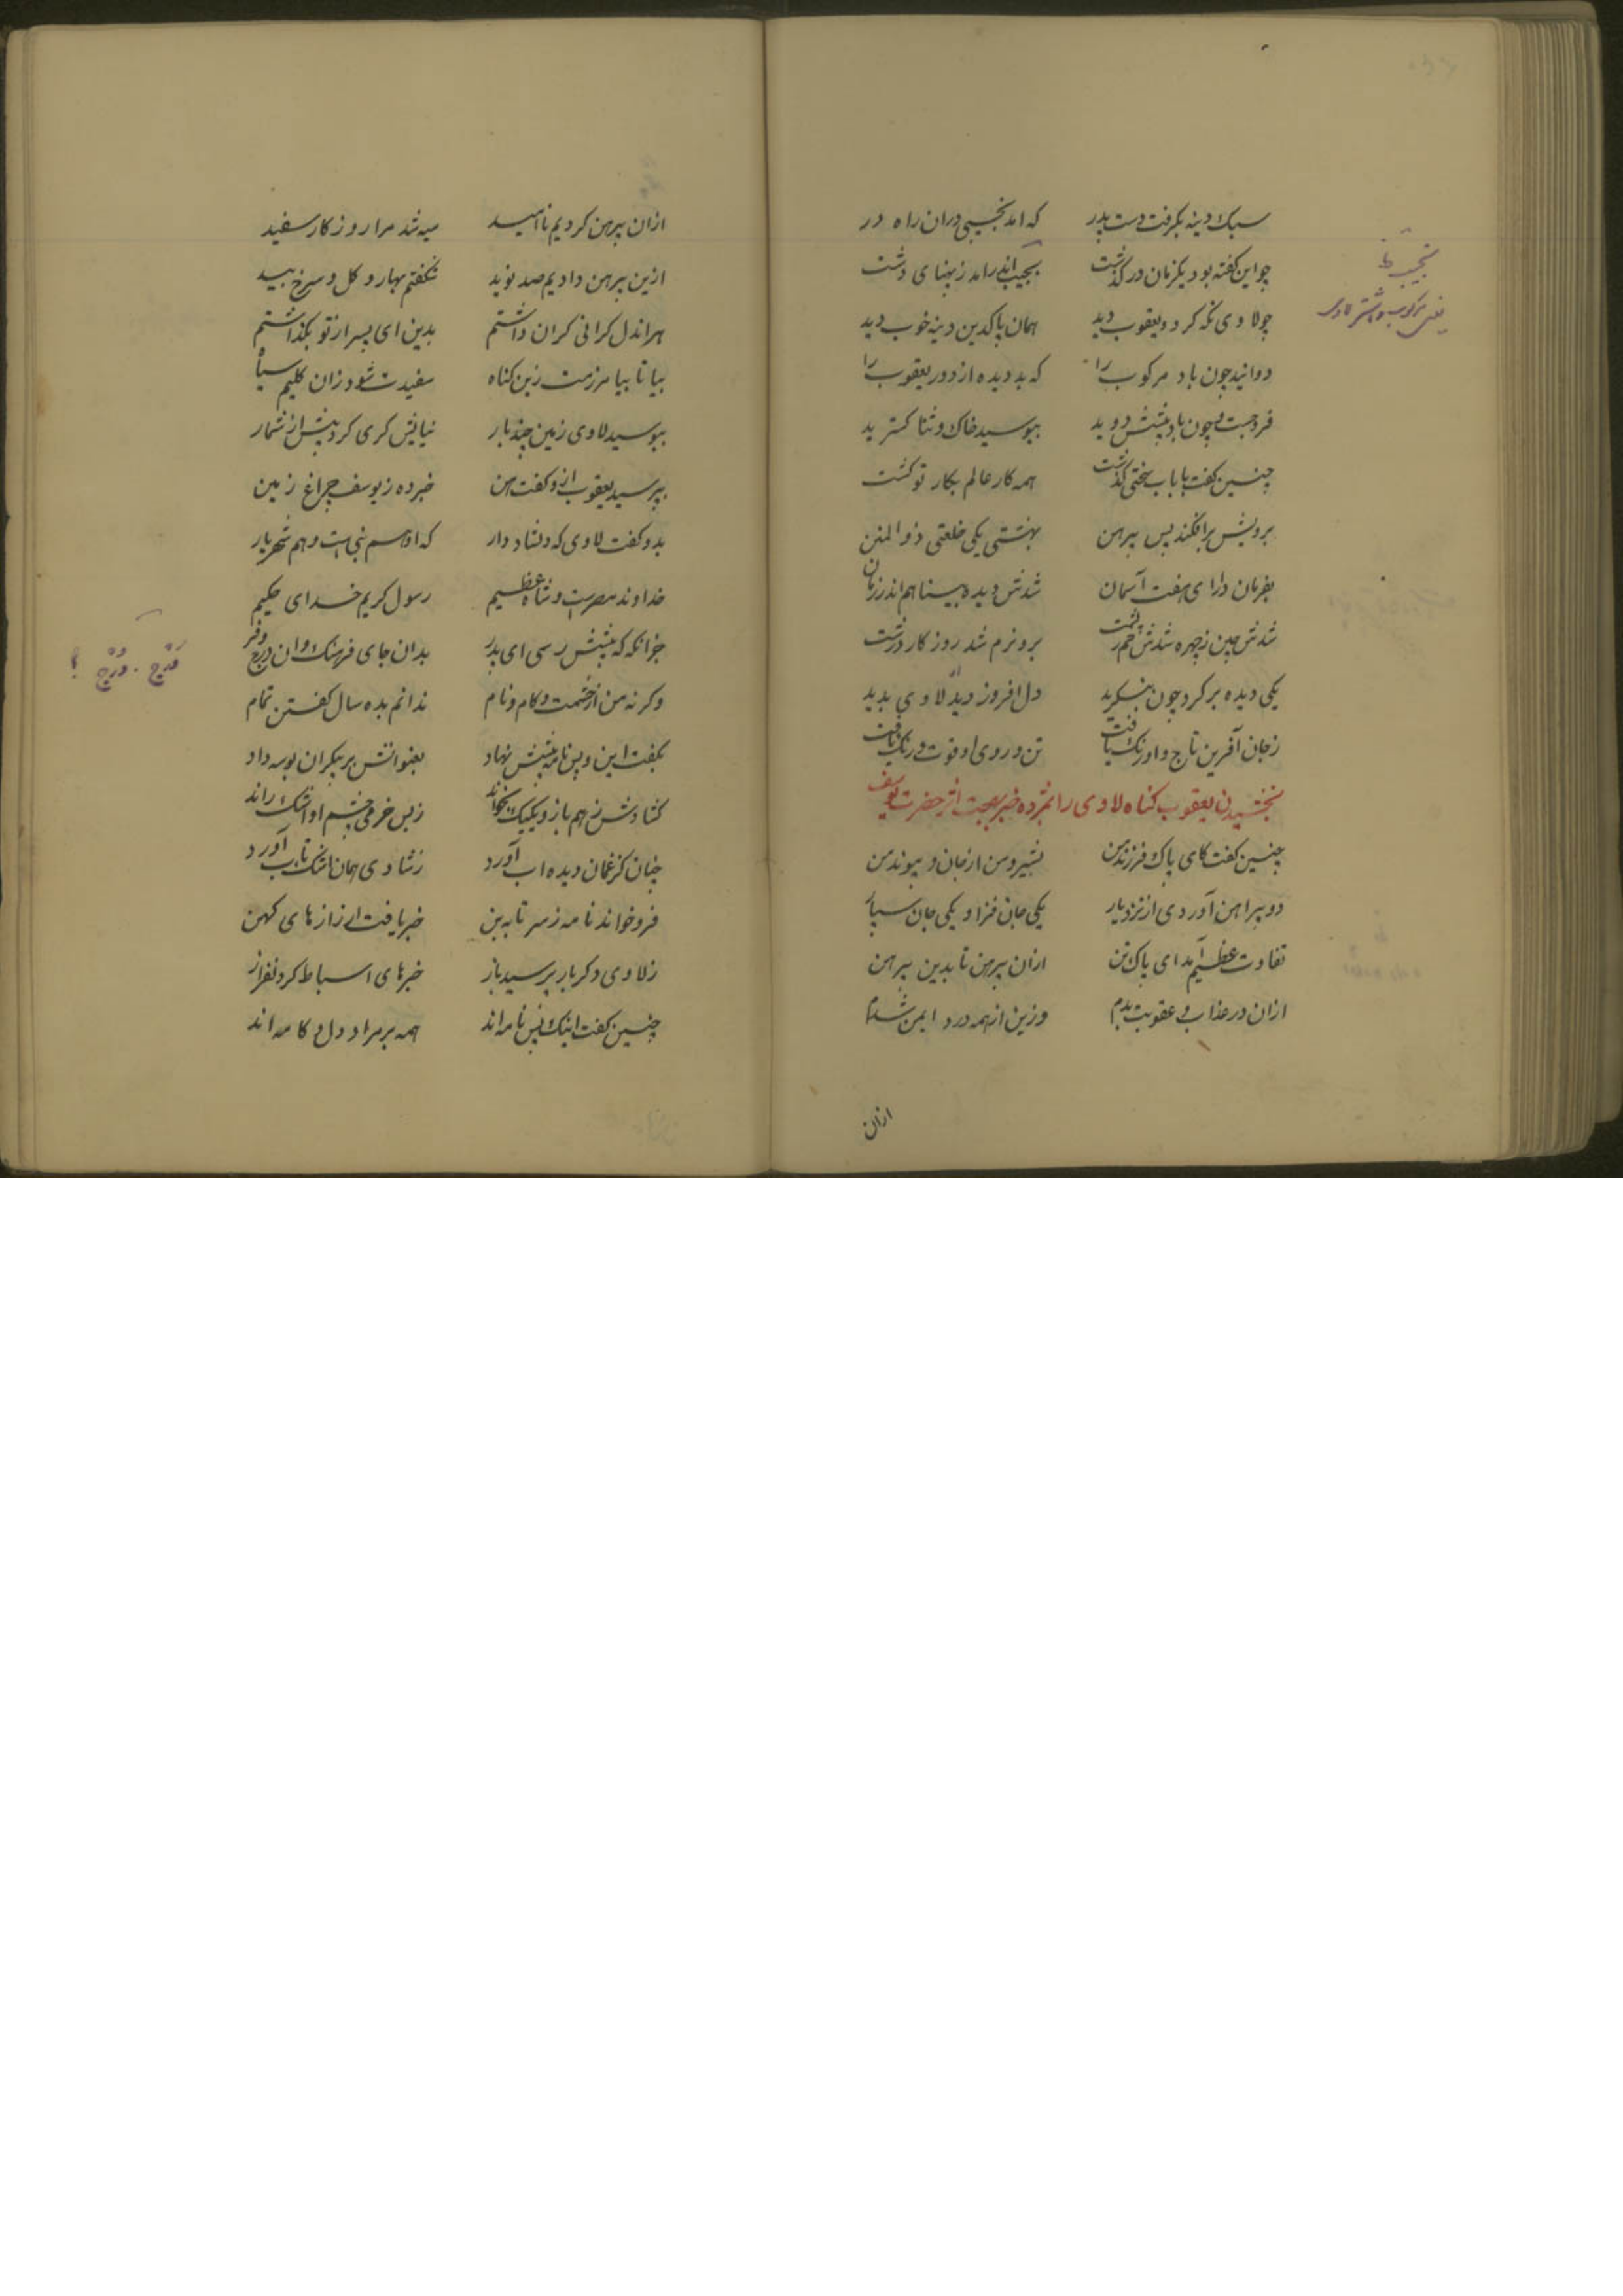 سبک دینه بگرفت دست پدر که امد نجیبی دران راه در
چو این گفته بود یکزمان درگذشت نجیب اندر امد ز پهنای دشت
چو لاوی نگه کرد و یعقوب دید همان پاکدین دینه خوب دید
دوانید چون باد مرکوب را که بد دیده از دور یعقوب را
فروجست و چون باد پیشش دوید ببوسید خاک و ثنا گسترید
چنین گفت بابا ب سختی گذشت همه کار عالم بکار تو گشت
برویش برافکند پس پیرهن بهشتی یکی خلعتی ذوالمنن
بفرمان دارای هفت آسمان شدش دیده بینا هم اندر زمان
شدش چین ز چهره شدش خم ز پشت برو نرم شد روزکار درشت
یکی دیده برکرد چون بنگرید دل افروز دیدار لاوی بدید
ز جان آفرین تاج و اورنک یافت تن و روی او قوت و رنک یافت
بخشیدن یعقوب گناه لاوی را بمژده خبر بهجت اثر حضرت یوسف
چنین گفت کای پاک فرزند من بشیر و من از جان و پیوند من
دو پیراهن آوردی از نزد یار یکی جان فزا و یکی جان سپار
تفاوت عظیم آمد ای پاک تن ازان پیرهن تا بدین پیرهن
ازان در عذاب و عقوبت بدم وزین از همه درد ایمن شدم
ازان
نجیب بما
یعنی مرکوب و اشتر لاوی
ازان پیرهن کردیم ناامید سیه شد مرا روزکار سفید
ازین پیرهن دادیم صد نوید شکفتم بهار و گل و سرخ بید
هراندل کرانی کران داشتم بدین ای پسر از تو بگذاشتم
بیا تا بیامرزمت زین گناه سفیدت شود زان گلیم سیاه
ببوسید لاوی زمین چند بار نیایش کری کرد بیش از شمار
بپرسید یعقوب ازو گفت هین خبر ده ز یوسف چراغ زمین
بدو گفت لاوی که دلشاد دار که او هم نبی است و هم شهریار
خداوند مصرست و شاه عظیم رسول کریم خدای حکیم
جز آنکه که پیشش رسی ای پدر بدان جای فرهنک و ان درج و فر
وگرنه من از حشمت و کام و نام ندانم بده سال گفتن تمام
بگفت این و پس نامه پیشش نهاد بعنوانش بر بیکران بوسه داد
گشادش ز هم باز و یکیک بخواند ز بس خرمی چشم او اشک راند
چنان کز غمان دیده اب آورد ز شادی همان اشک ناب آورد
فرو خواند نامه ز سر تا به بن خبر یافت از رازهای کهن
ز لاوی دکر بار پرسید باز خبرهای اسباط گردنفراز
چنین گفت اینک پس نامه اند همه بر مراد دل و کامه اند
فَرج . دُرج ؟